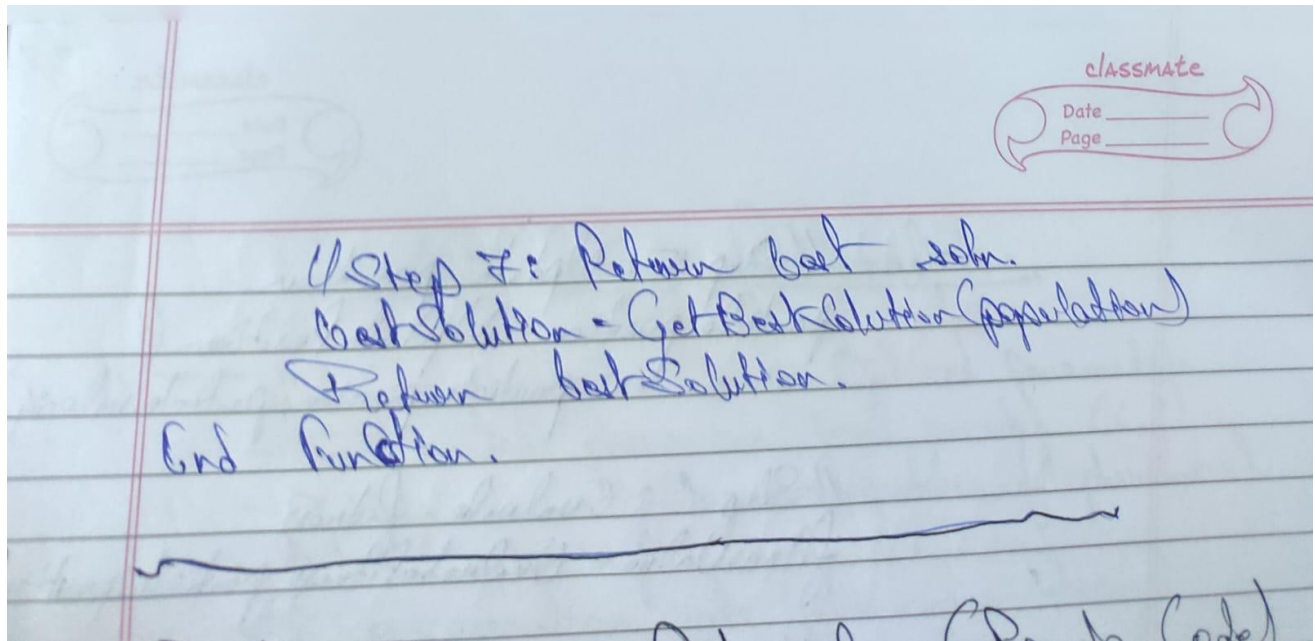 classmate
Date
Page
// Step 7: Return best soln.
bestSolution = GetBestSolution(population)
Return bestSolution.
End Function.
Code)